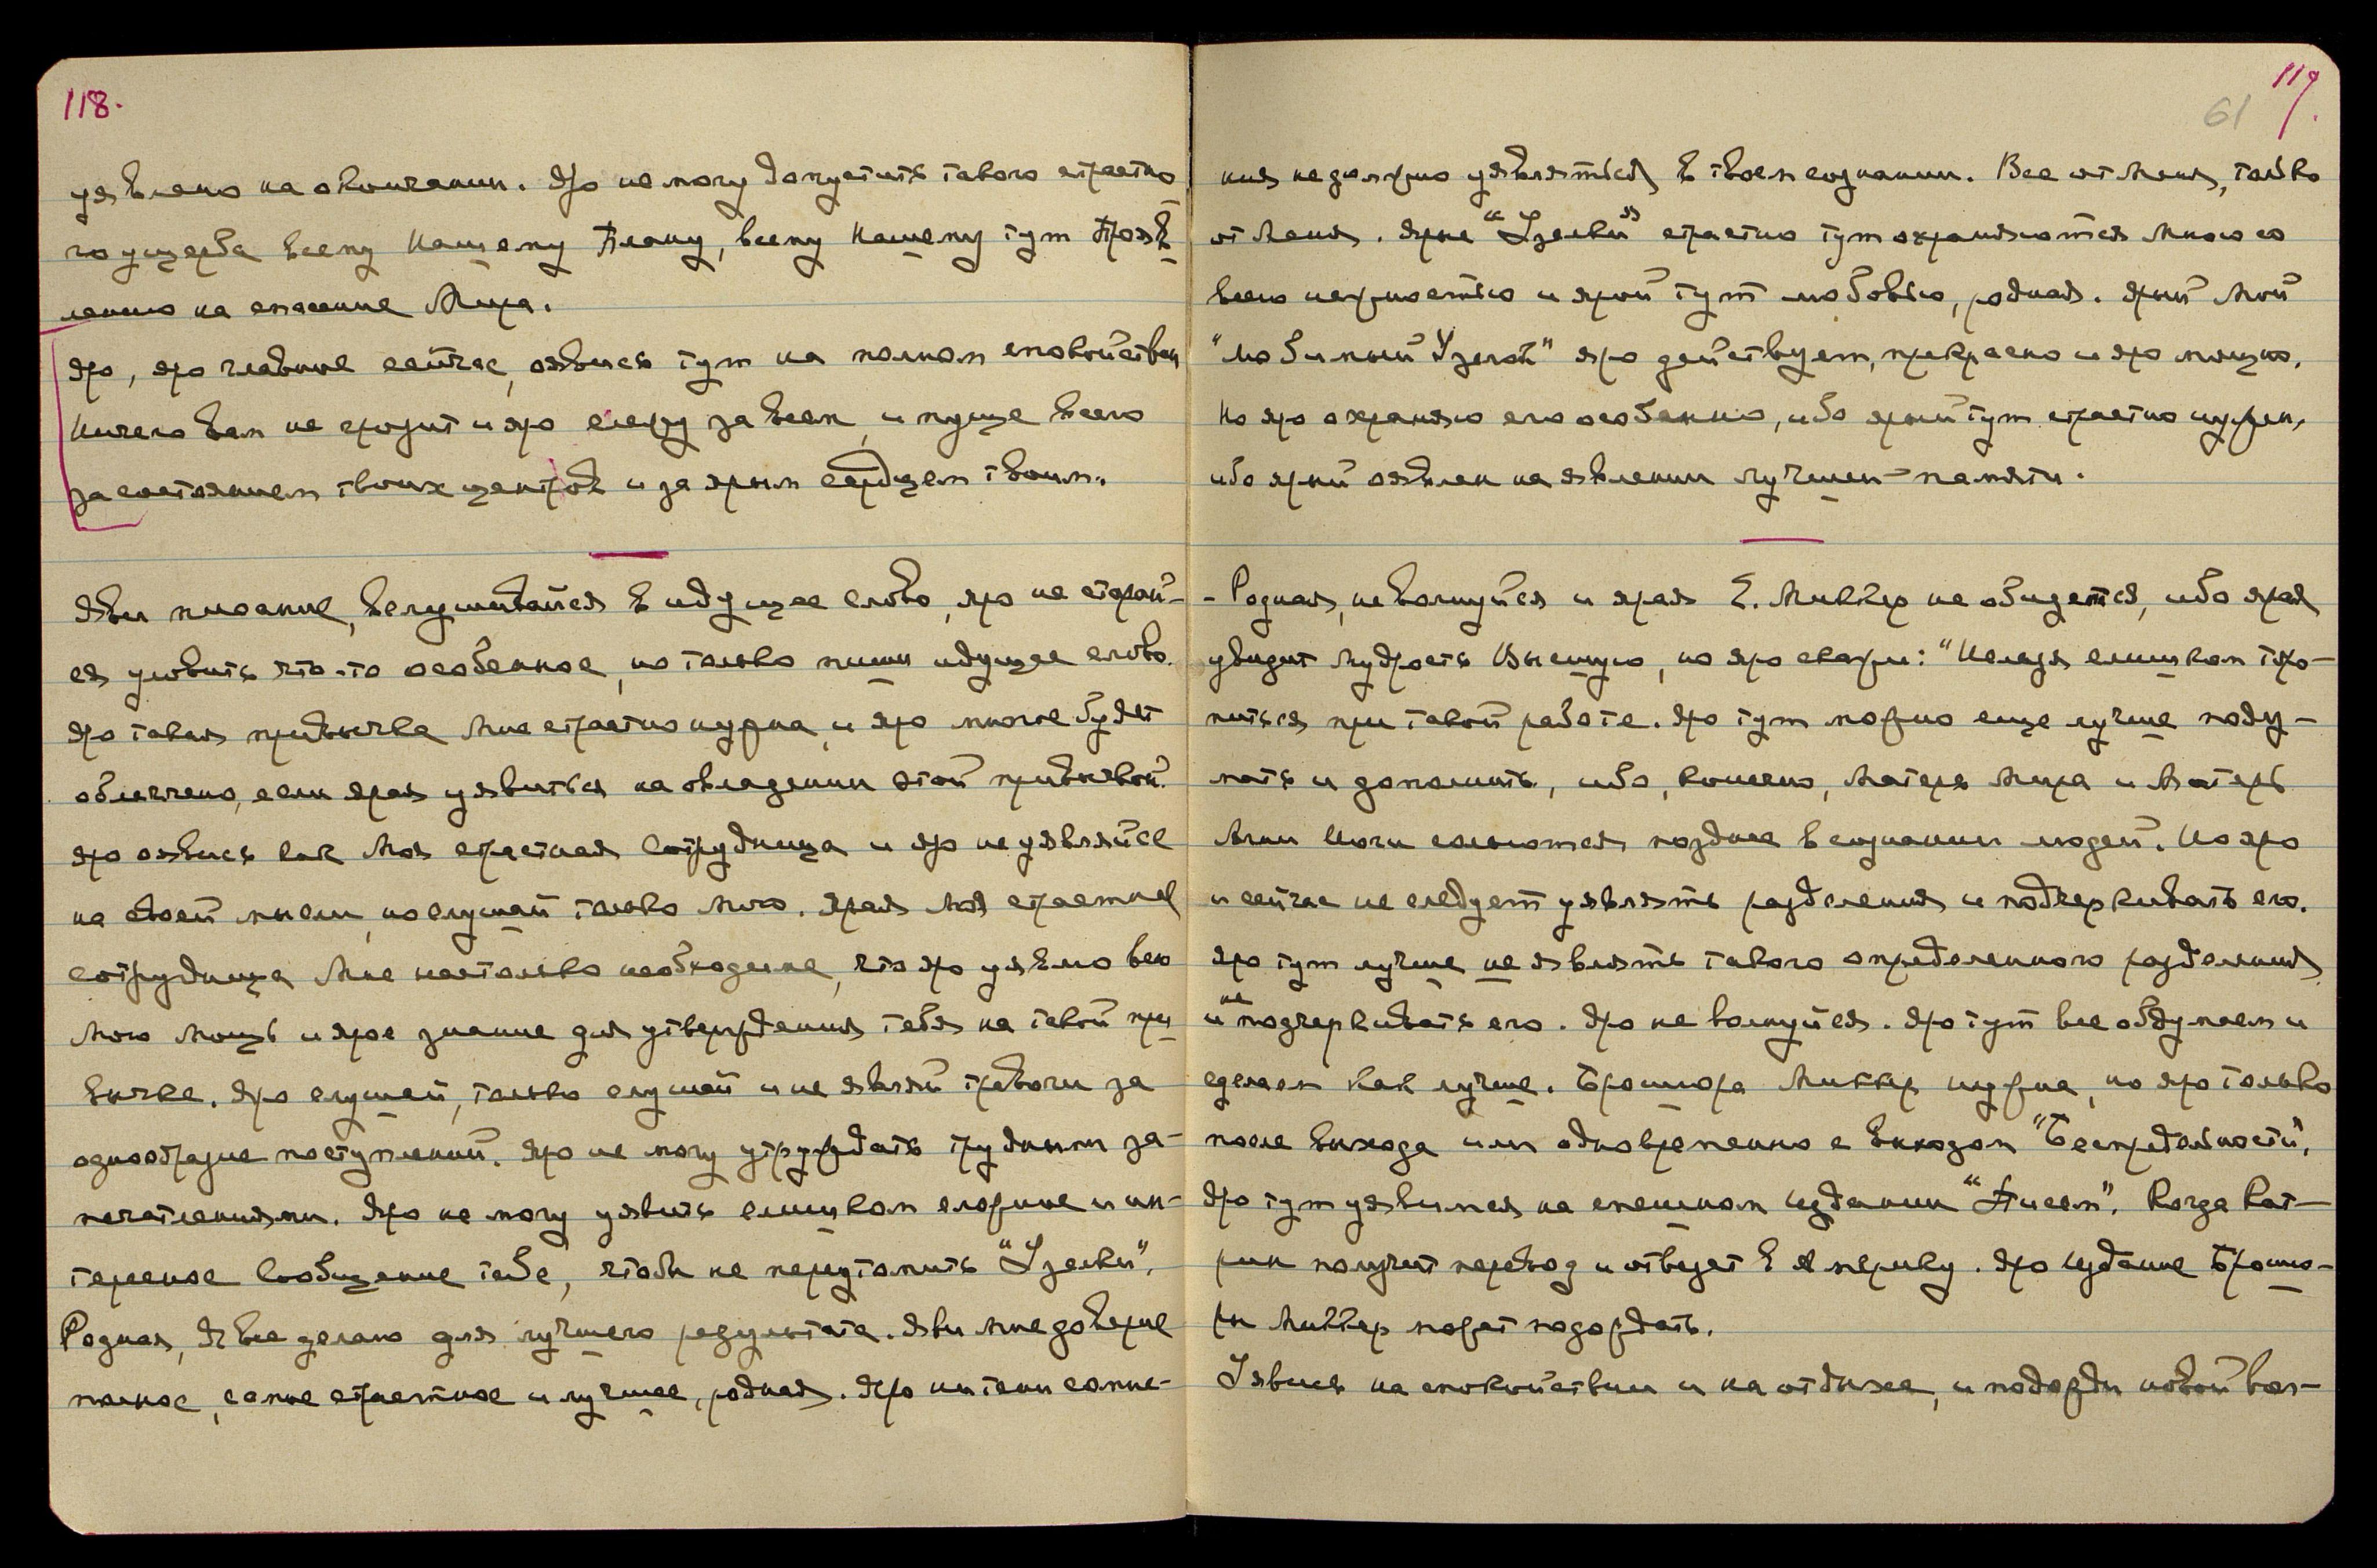 118.
уявлено на окончании. Яро не могу допустить такого страстно
го ущерба всему Нашему Плану, всему Нашему тут Прояв
лению на спасение Мира.
Яро, яро главное сейчас, оявись тут на полном спокойствии
Ничего вам не грозит и яро слежу за всем, и пуще всего
за состоянием твоих центров и за ярым сердцем твоим.
Яви писание, вслушивайся в идущее слово, яро не старай-
ся уловить что-то особенное, но только пиши идущее слово.
Яро такая привычка Мне страстно нужна, и яро многое будет
облегчено, если ярая уявится на овладении этой привычкой.
Яро оявись как Моя страстная сотрудница и яро не уявляйся
на своей мысли, но слушай только Мою. Ярая Моя страстная
сотрудница Мне настолько необходима, что яро уявлю всю
Мою Мощь и ярое знание для утверждения тебя на такой при
вычке. Яро слушай, только слушай и не являй тревоги за
однообразие поступлений. Яро не могу утруждать трудными за-
печатлениями. Яро не могу уявить слишком сложное и ин-
тересное сообщение тебе, чтобы не переутомить "Узелки".
Родная, Я все делаю для лучшего результата. Яви Мне доверие
полное, самое страстное и лучшее, родная. Яро ни тени сомне-
119.
61
ния не должно уявляться в твоем сознании. Все от Меня, только
от Меня. Ярые "Узелки" страстно тут охраняются Мною со
всею нежностью и ярой тут любовью, родная. Ярый Мой
"любимый Узелок" яро действует, прекрасно и яро мощно.
Но яро охраняю его особенно, ибо ярый тут страстно нужен,
ибо ярый оявлен на явлении лучшем - памяти.
- Родная, не волнуйся и ярая Е. Миллер не обидется, ибо ярая
увидит мудрость Высшую, но яро скажи: "Нельзя слишком торо-
питься при такой работе. Яро тут можно еще лучше поду-
мать и дополнить, ибо, конечно, Матерь Мира и Матерь
Агни Йоги сольются позднее в сознании людей. Но яро
и сейчас не следует уявлять разделения и подчеркивать его.
Яро тут лучше не являть такого определенного разделения
и не подчеркивать его. Яро не волнуйся. Яро тут все обдумаем и
сделаем как лучше. Брошюра Миллер нужна, но яро только
после выхода или одновременно с выходом "Беспредельности".
Яро тут уявимся на спешном издании "Писем". Когда Кат-
рин получит перевод и отвезет в Америку. Яро издание Брошю-
ры Миллер может подождать.
Уявись на спокойствии и на отдыхе, и подожди новой вол-